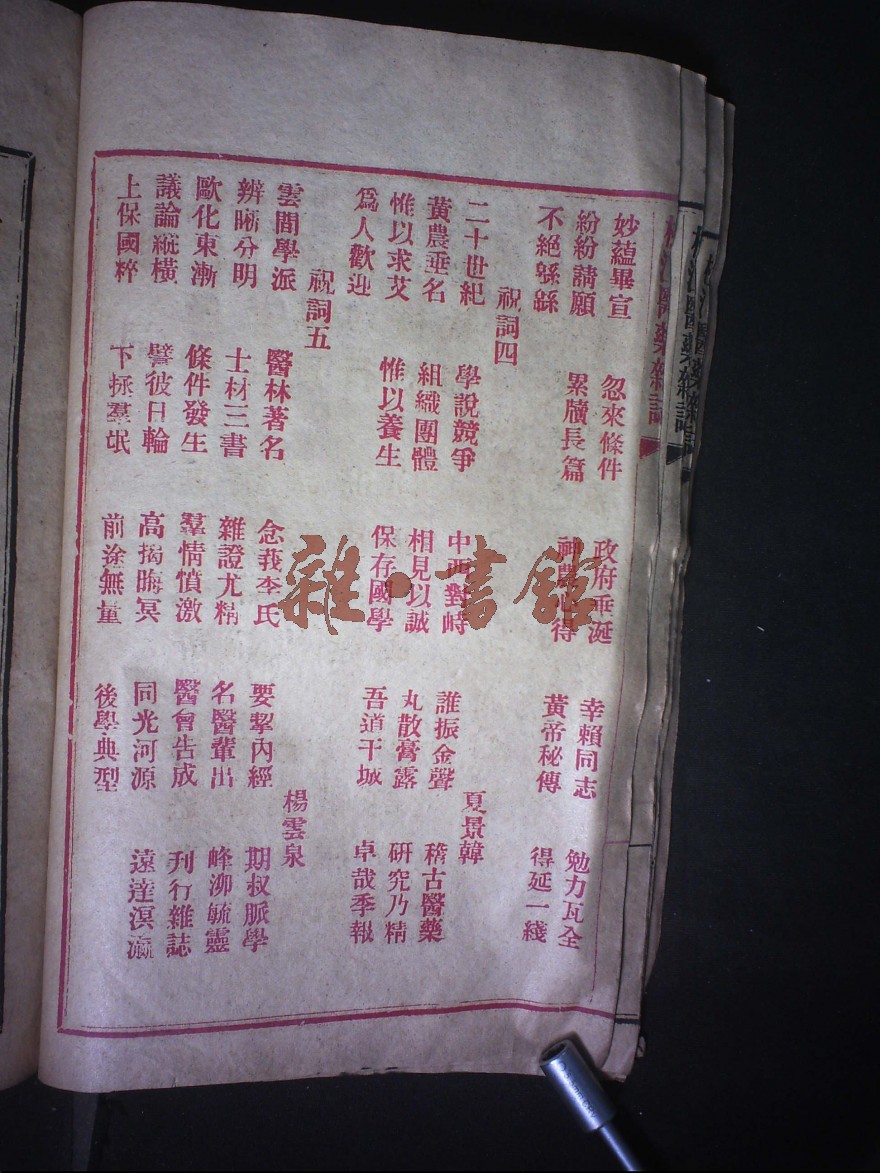 妙蘊畢宣 忽來條件 政府垂涎 幸賴同志 勉力瓦全
紛紛請願 累牘長篇 神農心得 黃帝秘傳 得延一綫
不絕繇繇
祝詞四 夏景韓
二十世紀 學說競爭 中西對峙 誰振金聲 稽古醫藥
黃農垂名 組織團體 相見以誠 丸散膏露 研究乃精
惟以求艾 惟以養生 保存國學 吾道干城 卓哉季報
爲人歡迎
祝詞五 楊雲泉
雲間學派 醫林著名 念莪李氏 要挈內經 期叔脈學
辨晰分明 士材三書 雜證尤精 名醫輩出 峰泖毓靈
歐化東漸 條件發生 羣情憤激 醫會告成 刊行雜誌
議論縱橫 譬彼日輪 高揭晦冥 同光河源 遠達溟瀛
上保國粹 下拯羣氓 前途無量 後學典型
雜·書館